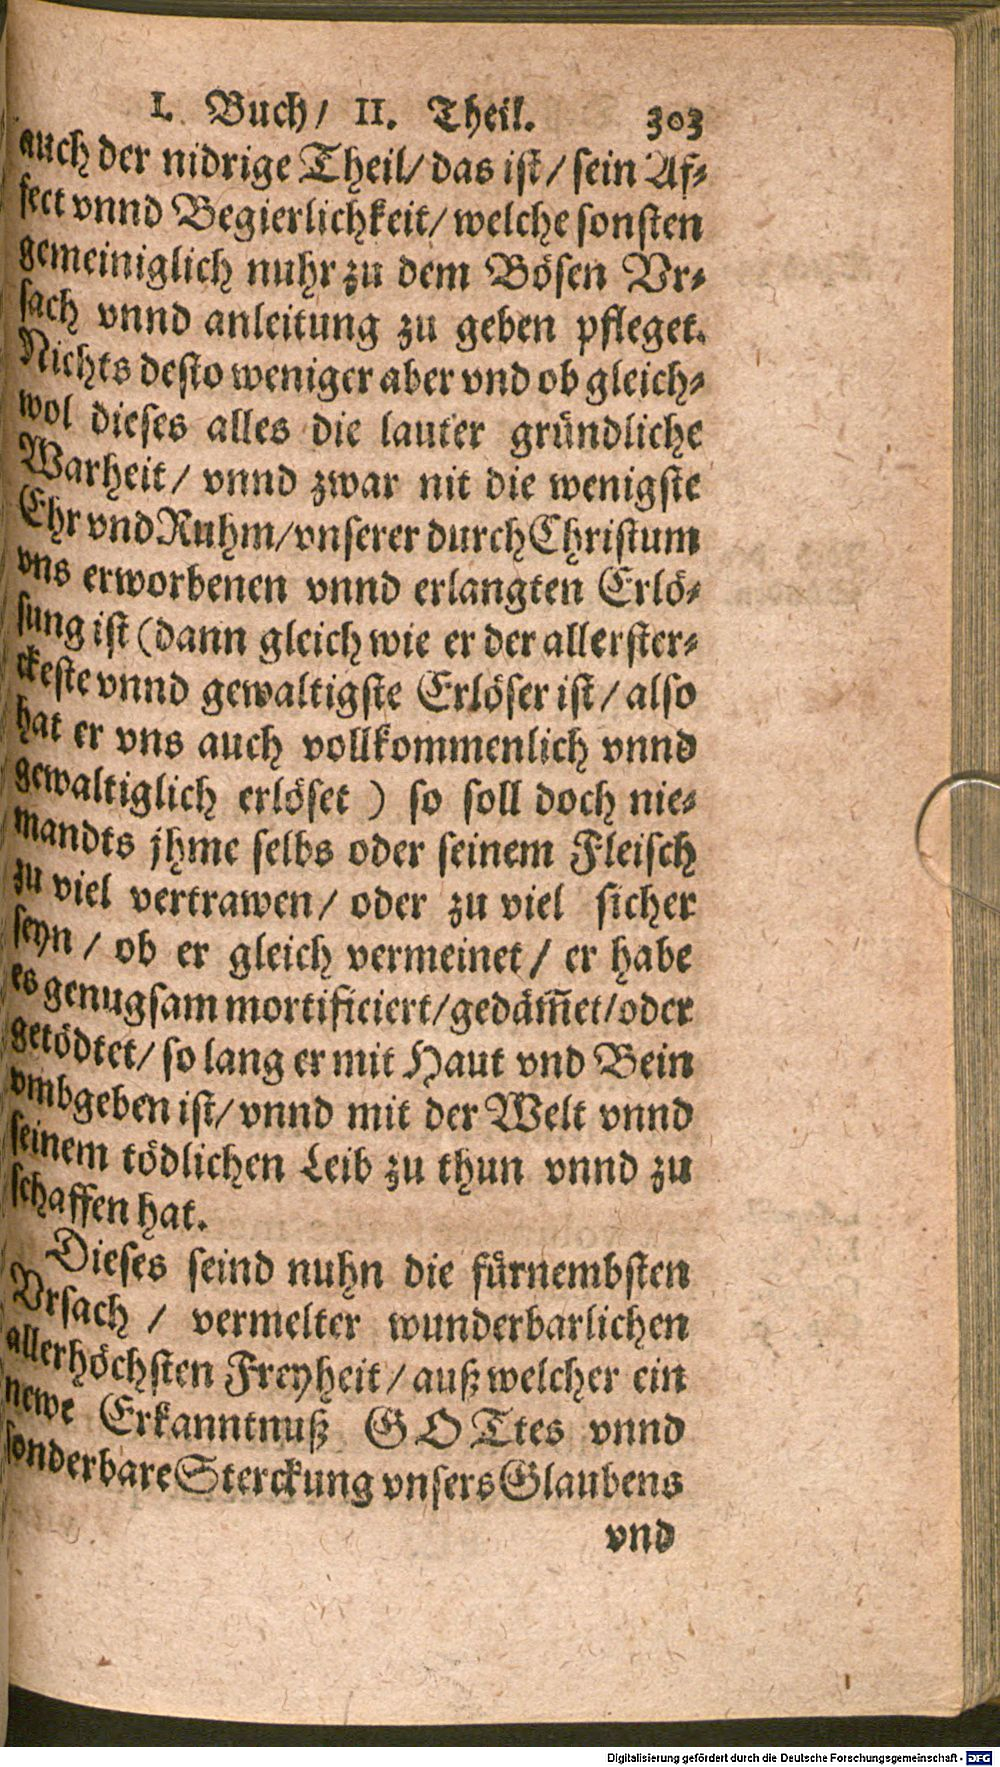 I. Buch/ II. Theil. 303
auch der nidrige Theil/ das ist/ sein Af⸗
fect vnnd Begierlichkeit/ welche sonsten
gemeiniglich nuhr zu dem Bösen Vr⸗
sach vnnd anleitung zu geben pfleget.
Nichts desto weniger aber vnd ob gleich⸗
wol dieses alles die lauter gründliche
Warheit/ vnnd zwar nit die wenigste
Ehr vnd Ruhm/ vnserer durch Christum
vns erworbenen vnnd erlangten Erlö⸗
sung ist (dann gleich wie er der allerster⸗
ckeste vnnd gewaltigste Erlöser ist/ also
hat er vns auch vollkommenlich vnnd
gewaltiglich erlöset ) so soll doch nie⸗
mandts jhme selbs oder seinem Fleisch
zu viel vertrawen/ oder zu viel sicher
seyn / ob er gleich vermeinet/ er habe
es genugsam mortificiert/ gedäm̃et/ oder
getödtet/ so lang er mit Haut vnd Bein
vmbgeben ist/ vnnd mit der Welt vnnd
seinem tödlichen Leib zu thun vnnd zu
schaffen hat.
Dieses seind nuhn die fürnembsten
Vrsach / vermelter wunderbarlichen
allerhöchsten Freyheit/ auß welcher ein
newe Erkanntnuß GOTtes vnnd
sonderbare Sterckung vnsers Glaubens
vnd
Digitalisierung gefördert durch die Deutsche Forschungsgemeinschaft - DFG